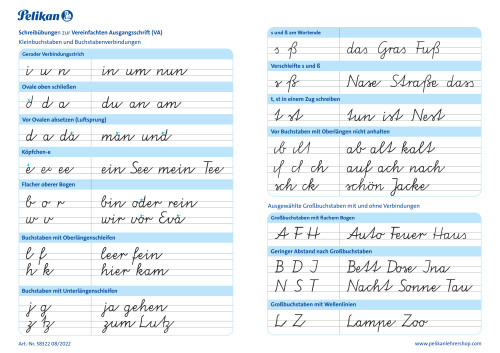 Pelikan
Schreibübungen zur Vereinfachten Ausgangsschrift (VA)
Kleinbuchstaben und Buchstabenverbindungen
Gerader Verbindungsstrich
i u n in um nun
Ovale oben schließen
d d a du an am
Vor Ovalen absetzen (Luftsprung)
d a da man und
Köpfchen-e
e ee ee ein See mein Tee
Flacher oberer Bogen
b o r bin oder rein
w v wir vor Eva
Buchstaben mit Oberlängenschleifen
l f leer fein
h k hier kam
Buchstaben mit Unterlängenschleifen
j g ja gehen
z tz zum Lutz
Art.-Nr. 58322 08/2022
s und ß am Wortende
s ß das Gras Fuß
Verschleifte s und ß
s ß Nase Straße dass
t, st in einem Zug schreiben
t st tun ist Nest
Vor Buchstaben mit Oberlängen nicht anhalten
ab alt kalt
cl ch auf ach nach
sch ck schön Jacke
Ausgewählte Großbuchstaben mit und ohne Verbindungen
Großbuchstaben mit flachem Bogen
A F H Auto Feuer Haus
Geringer Abstand nach Großbuchstaben
B D I Bett Dose Ina
N S T Nacht Sonne Tau
Großbuchstaben mit Wellenlinien
L Z Lampe Zoo
www.pelikanlehrershop.com